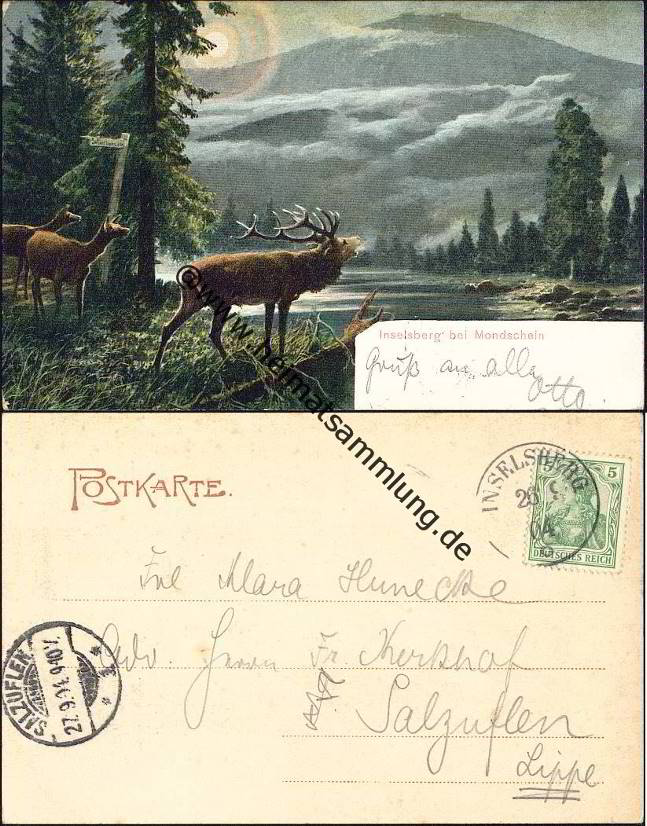 Inselsberg bei Mondschein
Gruß an alle
Otto.
© www.heimatsammlung.de
POSTKARTE.
INSELSBERG
26 9
04
5
DEUTSCHES REICH
Frl Klara Hunecke
Adr. Herrn Fr. Kerkhof
Salzuflen
Lippe
SALZUFLEN
27.9.04.9-10V.